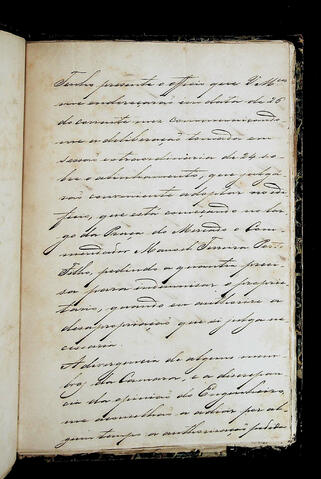 Tenho presente o officio que V.Mces
me endereçarão em data de 26
do corrente mez communicando
me a deliberação tomada em
sessão extraordinaria de 24 so-
bre o alinhamento, que julga-
rão conveniente adoptar no edi-
ficio, que está começando no lar-
go da Praça do Mercado o Com-
mendador Manoel Ferreira
Filho, pedindo a quantia preci-
sa para indemnisar o proprie-
tario, quando eu authorise a
desapropriação que se julga ne-
cessaria.
A divergencia de alguns mem-
bros da Camara, e a discrepan-
cia da opinião do Engenheiro,
me aconselhão a adiar por al-
gum tempo a authorisação pedida